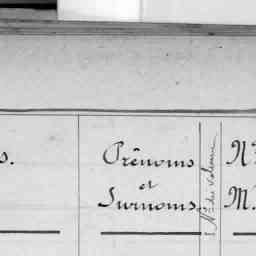 s.
Prénoms
et
Surnoms.
N° du volume
N°
M.